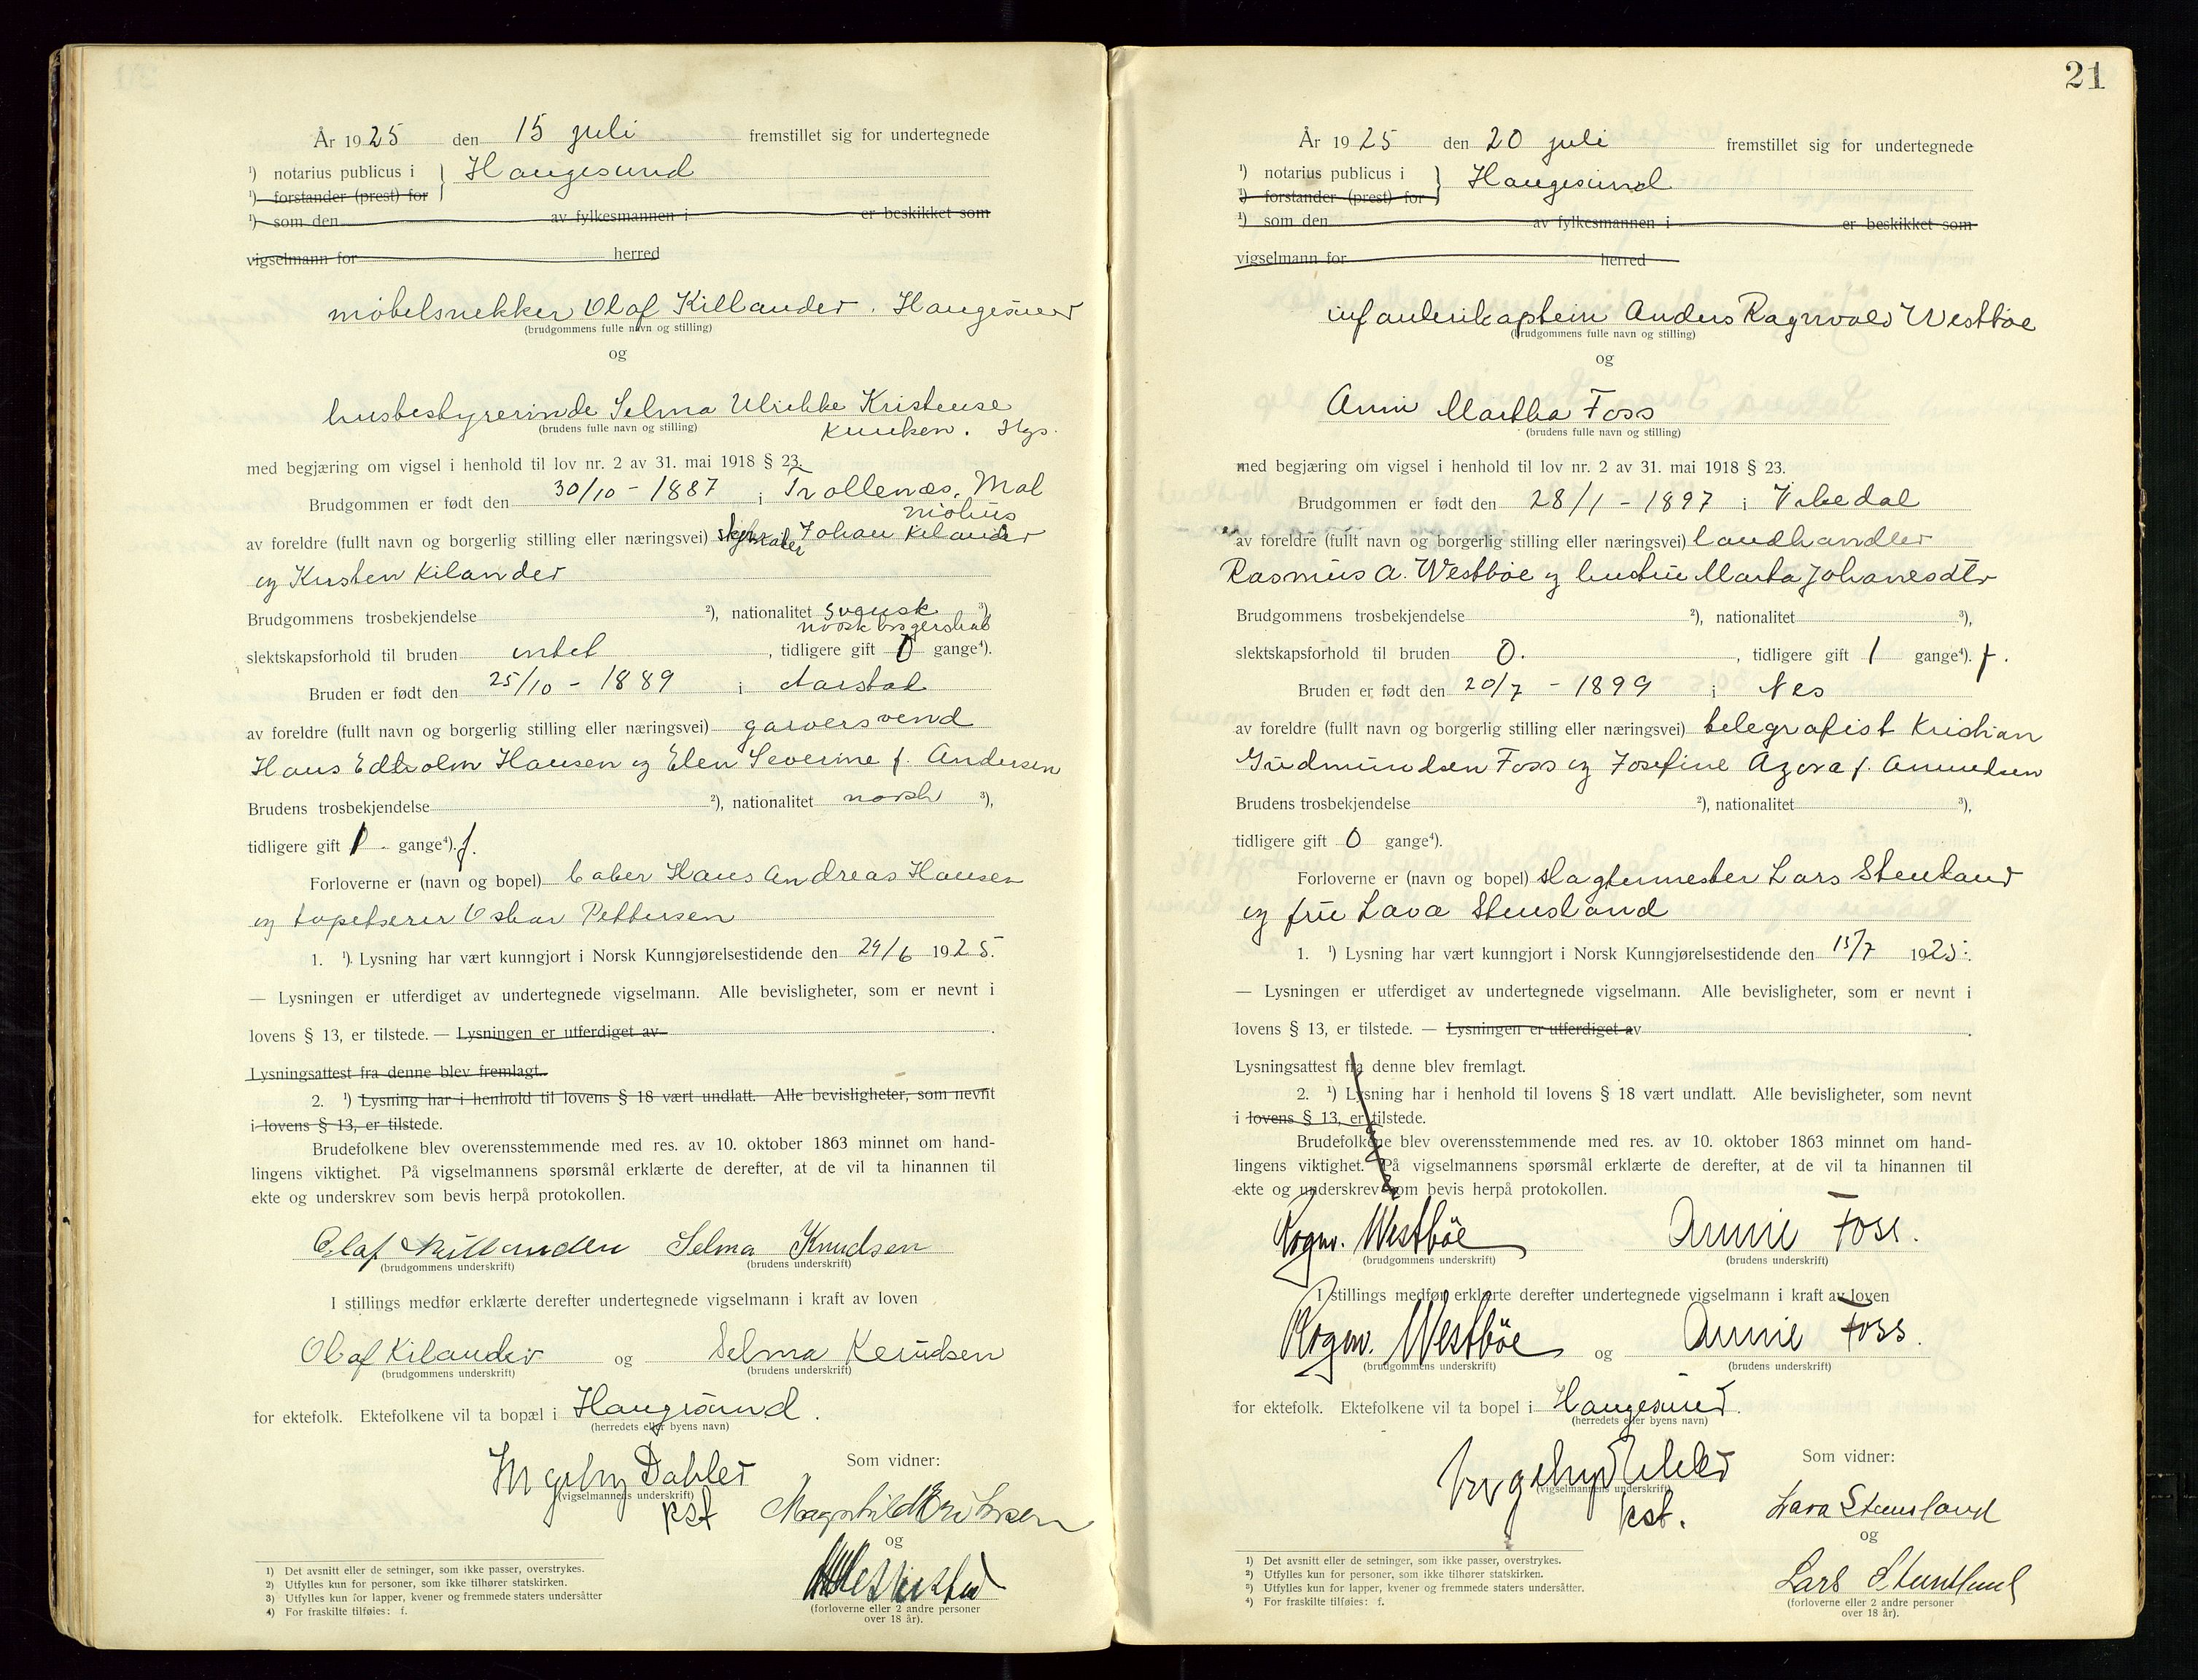 År 1925 den 15 juli fremstillet sig for undertegnede
¹) notarius publicus i } Haugesund
¹) forstander (prest) for
¹) som den av fylkesmannen i er beskikket som
vigselmann for herred
møbelsnekker Olaf Killander. Haugesund
(brudgommens fulle navn og stilling)
og
husbestyrerinde Selma Ulrikke Kristense
Knudsen. Hgs.
(brudens fulle navn og stilling)
med begjæring om vigsel i henhold til lov nr. 2 av 31. mai 1918 § 23.
Brudgommen er født den 30/10 - 1887 i Trollenæs, Mal
möhus
av foreldre (fullt navn og borgerlig stilling eller næringsvei) Johan Kilander
og Kirsten Kilander
Brudgommens trosbekjendelse ²), nationalitet svensk ³),
norsk borgerskab
slektskapsforhold til bruden intet, tidligere gift 0 gange⁴).
Bruden er født den 25/10 - 1889 i Aarstad
av foreldre (fullt navn og borgerlig stilling eller næringsvei) garversvend
Hans Edholm Hansen og Elen Severine f. Andersen
Brudens trosbekjendelse ²), nationalitet norsk ³),
tidligere gift 1 gange⁴). f.
Forloverne er (navn og bopel) Hans Andreas Hansen
og tapetserer Oskar Pettersen
1. ¹) Lysning har vært kunngjort i Norsk Kunngjørelsestidende den 29/6 1925.
— Lysningen er utferdiget av undertegnede vigselmann. Alle bevisligheter, som er nevnt i
lovens § 13, er tilstede. — Lysningen er utferdiget av
Lysningsattest fra denne blev fremlagt.
2. ¹) Lysning har i henhold til lovens § 18 vært undlatt. Alle bevisligheter, som nevnt
i lovens § 13, er tilstede.
Brudefolkene blev overensstemmende med res. av 10. oktober 1863 minnet om hand-
lingens viktighet. På vigselmannens spørsmål erklærte de derefter, at de vil ta hinannen til
ekte og underskrev som bevis herpå protokollen.
Olaf Killander Selma Knudsen
(brudgommens underskrift) (brudens underskrift)
I stillings medfør erklærte derefter undertegnede vigselmann i kraft av loven
Olaf Kilander og Selma Knudsen
(brudgommens underskrift) (brudens underskrift)
for ektefolk. Ektefolkene vil ta bopæl i Haugesund.
(herredets eller byens navn)
Ingeborg Dahler Som vidner:
(vigselmannens underskrift)
kst Magnhild Eriksen
og
(forloverne eller 2 andre personer
over 18 år).
1) Det avsnitt eller de setninger, som ikke passer, overstrykes.
2) Utfylles kun for personer, som ikke tilhører statskirken.
3) Utfylles kun for lapper, kvener og fremmede staters undersåtter
4) For fraskilte tilføies: f.
21
År 1925 den 20 juli fremstillet sig for undertegnede
¹) notarius publicus i } Haugesund
¹) forstander (prest) for
¹) som den av fylkesmannen i er beskikket som
vigselmann for herred
infanterikaptein Anders Ragnvald Westbøe
(brudgommens fulle navn og stilling)
og
Anni Martha Foss
(brudens fulle navn og stilling)
med begjæring om vigsel i henhold til lov nr. 2 av 31. mai 1918 § 23.
Brudgommen er født den 28/1 - 1897 i Vikedal
av foreldre (fullt navn og borgerlig stilling eller næringsvei) landhandler
Rasmus A. Westbøe og hustru Marta Johanesdtr
Brudgommens trosbekjendelse ²), nationalitet ³),
slektskapsforhold til bruden 0., tidligere gift 1 gange⁴). f.
Bruden er født den 20/7 - 1899 i Nes
av foreldre (fullt navn og borgerlig stilling eller næringsvei) telegrafist Kristian
Gudmundsen Foss og Josefine Azora f. Amundsen
Brudens trosbekjendelse ²), nationalitet ³),
tidligere gift 0 gange⁴).
Forloverne er (navn og bopel) slagtermester Lars Stensland
og frue Lava Stensland
1. ¹) Lysning har vært kunngjort i Norsk Kunngjørelsestidende den 13/7 1925.
— Lysningen er utferdiget av undertegnede vigselmann. Alle bevisligheter, som er nevnt i
lovens § 13, er tilstede. — Lysningen er utferdiget av
Lysningsattest fra denne blev fremlagt.
2. ¹) Lysning har i henhold til lovens § 18 vært undlatt. Alle bevisligheter, som nevnt
i lovens § 13, er tilstede.
Brudefolkene blev overensstemmende med res. av 10. oktober 1863 minnet om hand-
lingens viktighet. På vigselmannens spørsmål erklærte de derefter, at de vil ta hinannen til
ekte og underskrev som bevis herpå protokollen.
Ragnv. Westböe Annie Foss.
(brudgommens underskrift) (brudens underskrift)
I stillings medfør erklærte derefter undertegnede vigselmann i kraft av loven
Ragnv. Westböe og Annie Foss.
(brudgommens underskrift) (brudens underskrift)
for ektefolk. Ektefolkene vil ta bopel i Haugesund.
(herredets eller byens navn)
Ingeborg Dahler Som vidner:
(vigselmannens underskrift)
kst. Lava Stensland
og
Lars Stensland
(forloverne eller 2 andre personer
over 18 år).
1) Det avsnitt eller de setninger, som ikke passer, overstrykes.
2) Utfylles kun for personer, som ikke tilhører statskirken.
3) Utfylles kun for lapper, kvener og fremmede staters undersåtter.
4) For fraskilte tilføies: f.